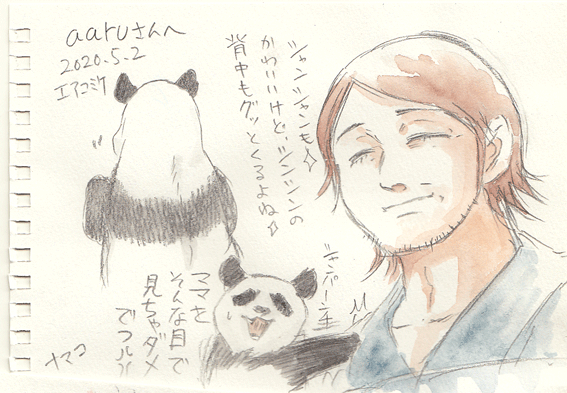 aaruさんへ
2020.5.2
エアコミケ
シャンシャンも✧
かわいいけど、シンシンの
背中もグッとくるよね✧
ママを
そんな目で
見ちゃダメ
でつル!!
ナマコ